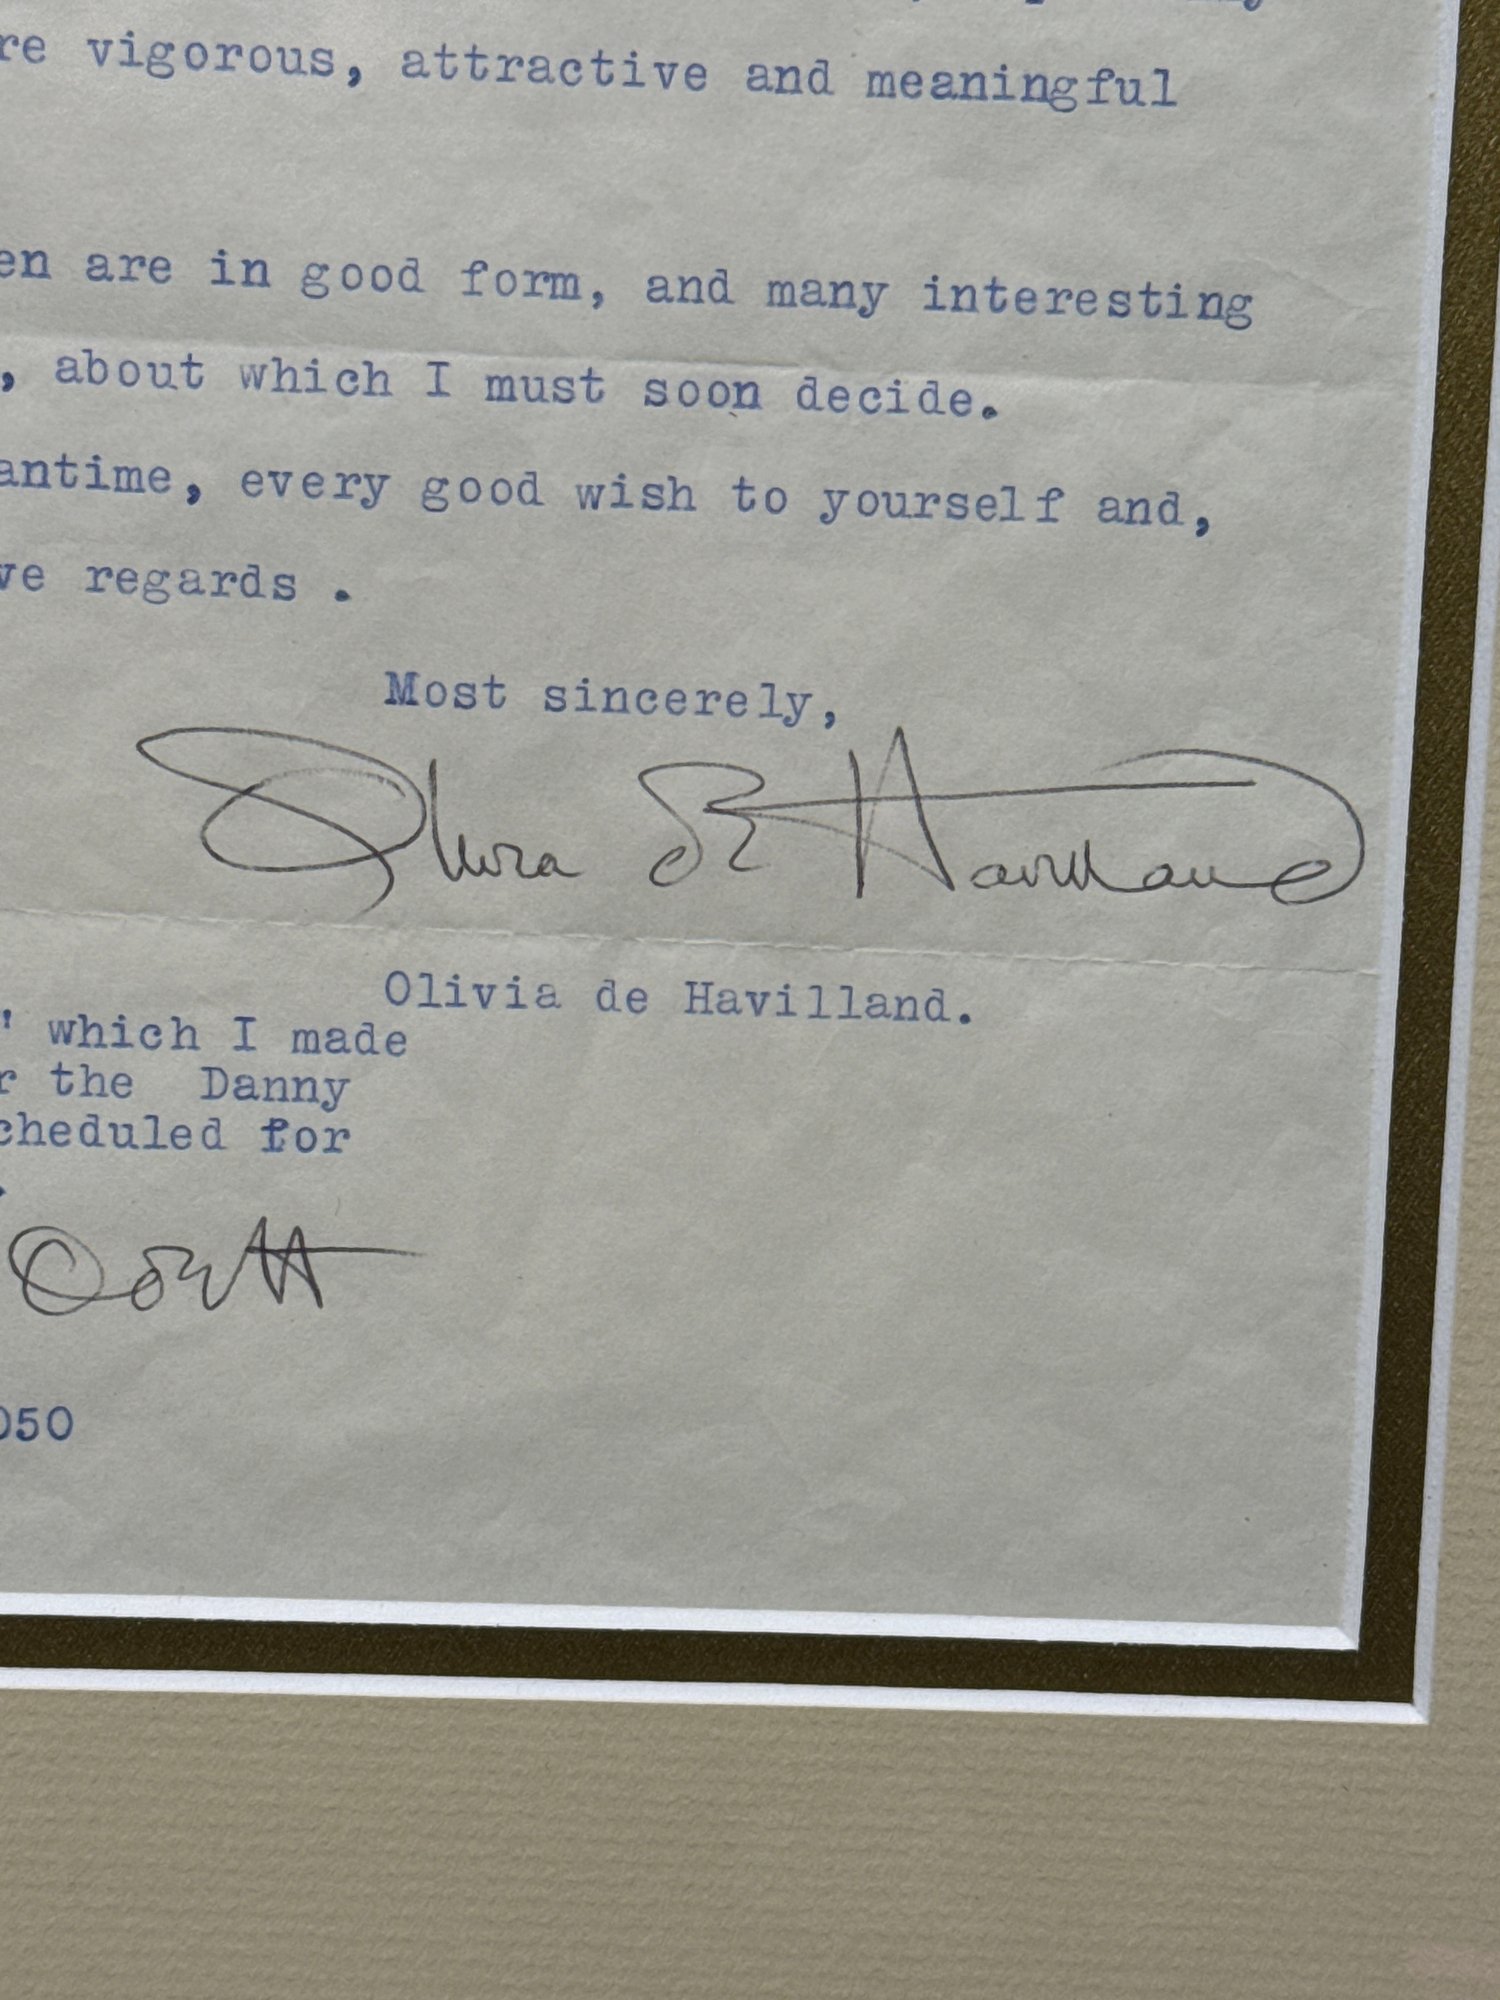 re vigorous, attractive and meaningful
en are in good form, and many interesting
, about which I must soon decide.
antime, every good wish to yourself and,
ve regards .
Most sincerely,
Olivia de Havilland
Olivia de Havilland.
' which I made
r the Danny
cheduled for
.
OdeH
050